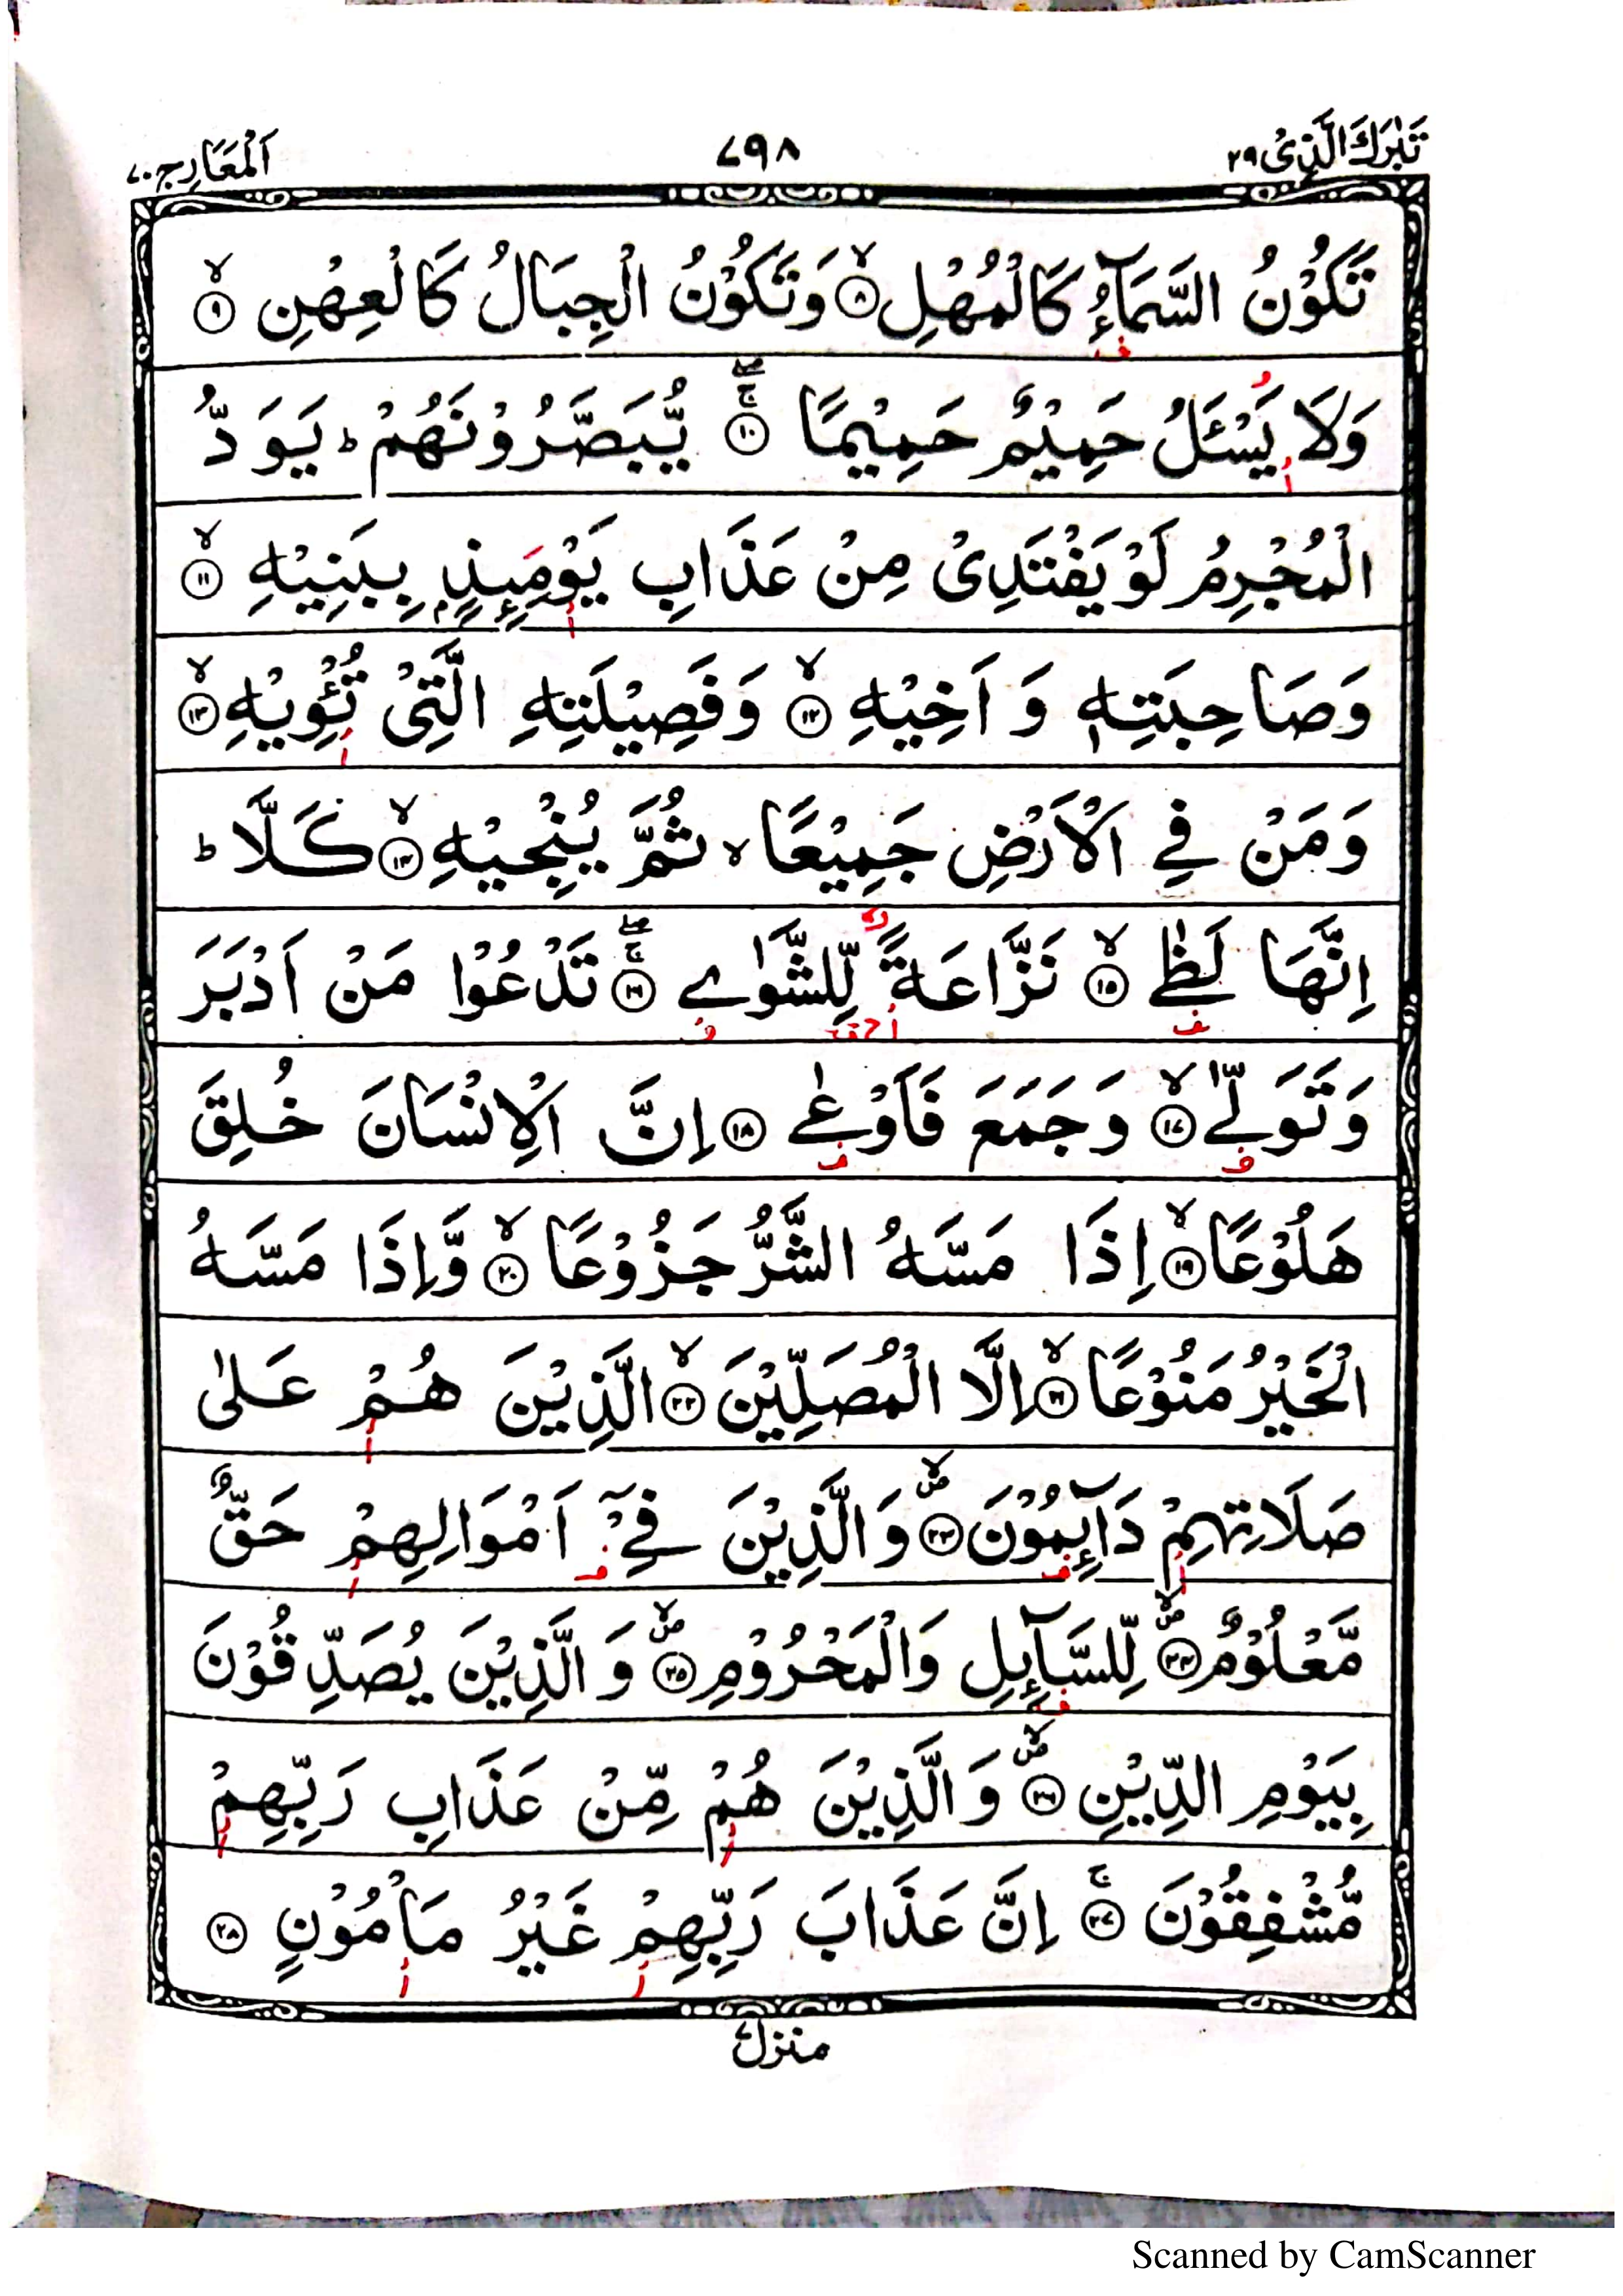 تَبٰرَكَ الَّذِىْ ٢٩
٧٩٨
اَلْمَعَارِج ٧٠
تَكُوْنُ السَّمَآءُ كَالْمُهْلِ ۙ﴿٨﴾ وَتَكُوْنُ الْجِبَالُ كَالْعِهْنِ ۙ﴿٩﴾
وَلَا يَسْـَٔلُ حَمِيْمٌ حَمِيْمًا ۚۖ﴿١٠﴾ يُّبَصَّرُوْنَهُمْ ؕ يَوَدُّ
الْمُجْرِمُ لَوْ يَفْتَدِىْ مِنْ عَذَابِ يَوْمَئِذٍۭ بِبَنِيْهِ ۙ﴿١١﴾
وَصَاحِبَتِهٖ وَ اَخِيْهِ ۙ﴿١٢﴾ وَفَصِيْلَتِهِ الَّتِىْ تُـْٔوِيْهِ ۙ﴿١٣﴾
وَمَنْ فِى الْاَرْضِ جَمِيْعًا ۙ ثُمَّ يُنْجِيْهِ ۙ﴿١٤﴾ كَلَّا ؕ
اِنَّهَا لَظٰى ۙ﴿١٥﴾ نَزَّاعَةً لِّلشَّوٰى ۚۖ﴿١٦﴾ تَدْعُوْا مَنْ اَدْبَرَ
وَتَوَلّٰى ۙ﴿١٧﴾ وَجَمَعَ فَاَوْعٰى ﴿١٨﴾ اِنَّ الْاِنْسَانَ خُلِقَ
هَلُوْعًا ۙ﴿١٩﴾ اِذَا مَسَّهُ الشَّرُّ جَزُوْعًا ۙ﴿٢٠﴾ وَّاِذَا مَسَّهُ
الْخَيْرُ مَنُوْعًا ۙ﴿٢١﴾ اِلَّا الْمُصَلِّيْنَ ۙ﴿٢٢﴾ الَّذِيْنَ هُمْ عَلٰى
صَلَاتِهِمْ دَآئِمُوْنَ ۪ۙ﴿٢٣﴾ وَالَّذِيْنَ فِىْۤ اَمْوَالِهِمْ حَقٌّ
مَّعْلُوْمٌ ۪ۙ﴿٢٤﴾ لِّلسَّآئِلِ وَالْمَحْرُوْمِ ۪ۙ﴿٢٥﴾ وَ الَّذِيْنَ يُصَدِّقُوْنَ
بِيَوْمِ الدِّيْنِ ۪ۙ﴿٢٦﴾ وَ الَّذِيْنَ هُمْ مِّنْ عَذَابِ رَبِّهِمْ
مُّشْفِقُوْنَ ۚ﴿٢٧﴾ اِنَّ عَذَابَ رَبِّهِمْ غَيْرُ مَاْمُوْنٍ ﴿٢٨﴾
منزل ٧
Scanned by CamScanner